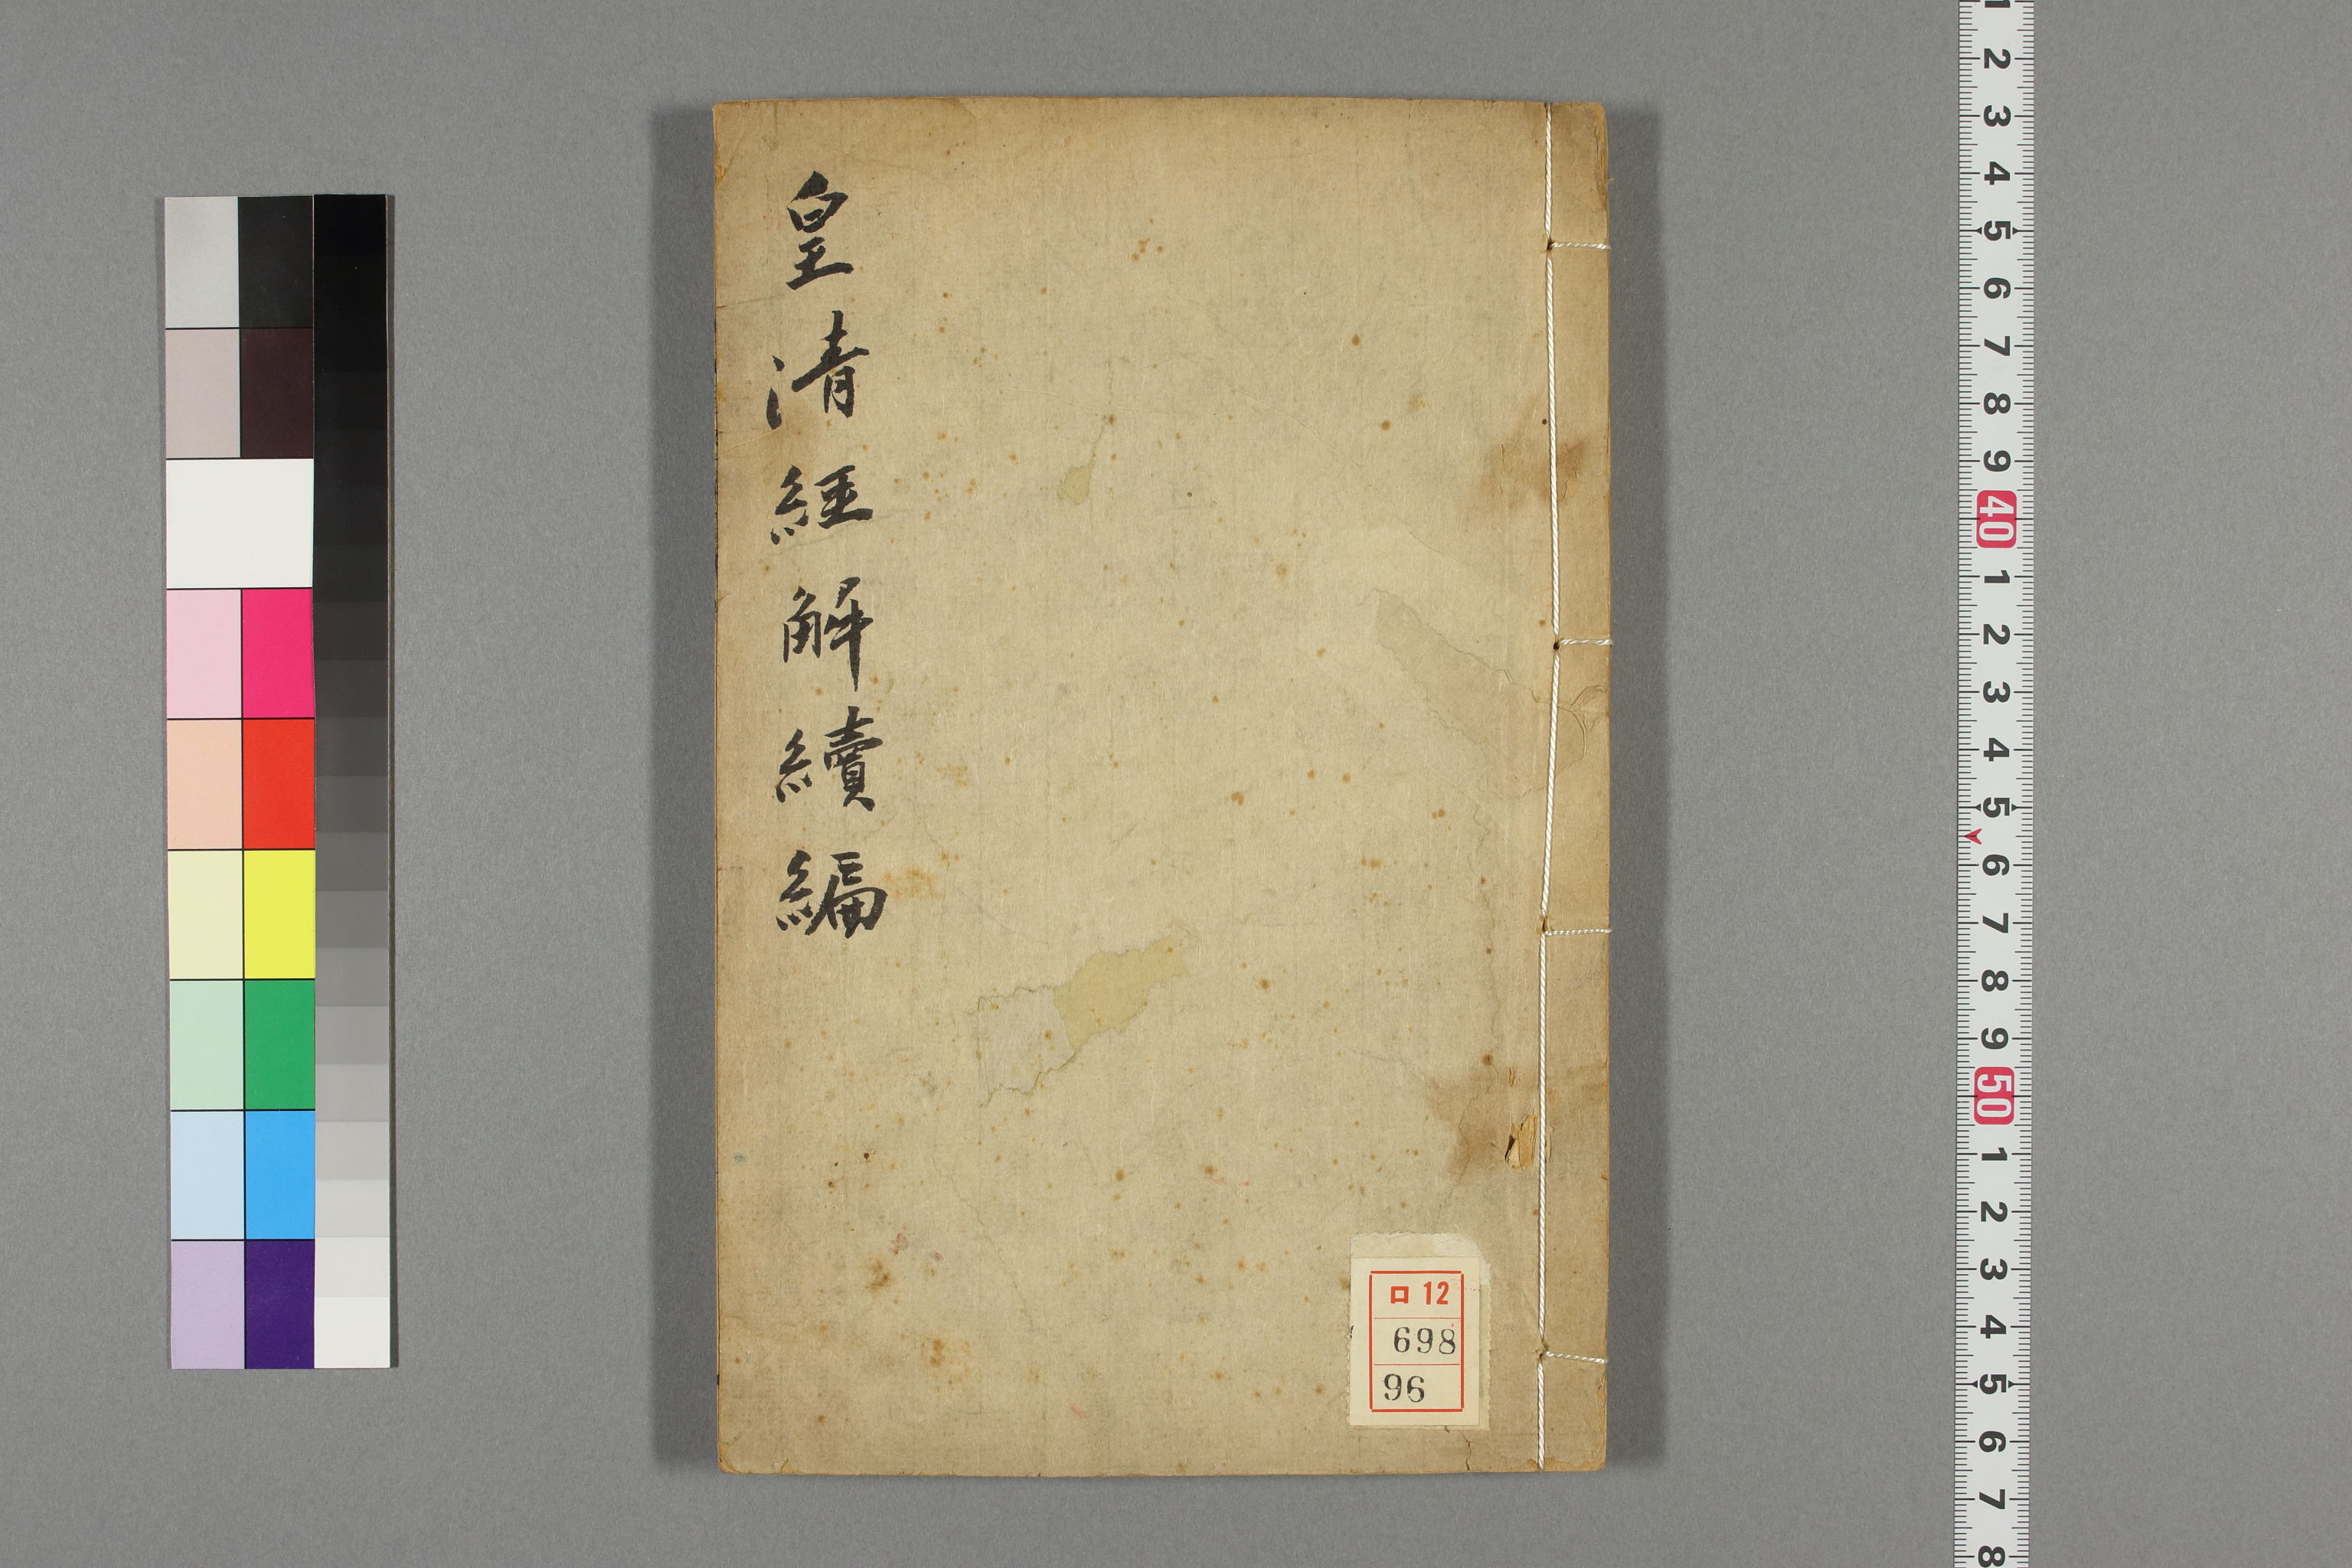 皇清經解續編
ロ 12
698
96
1
2
3
4
5
6
7
8
9
40
1
2
3
4
5
6
7
8
9
50
1
2
3
4
5
6
7
8